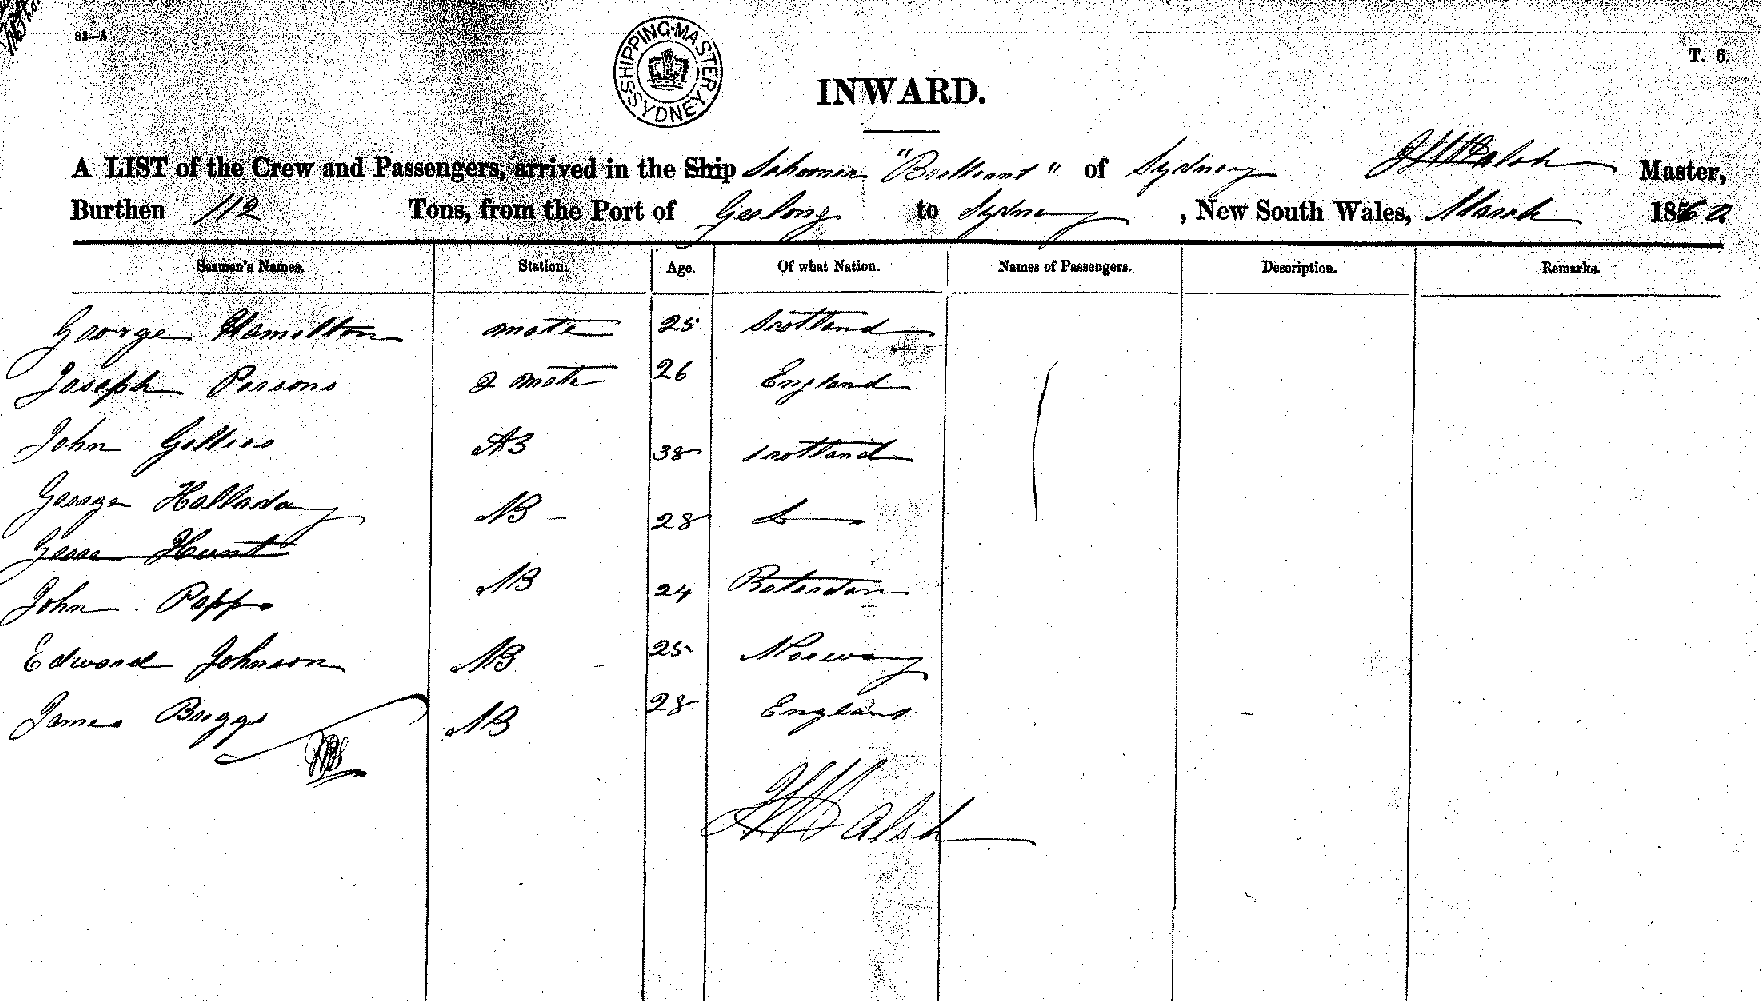 83—A
SHIPPING MASTER SYDNEY
T. 6.
INWARD.
A LIST of the Crew and Passengers, arrived in the Ship Schooner "Brilliant" of Sydney J W Walsh Master,
Burthen 112 Tons, from the Port of Geelong to Sydney, New South Wales, March 1860
Seamen's Names. Station. Age. Of what Nation. Names of Passengers. Description. Remarks.
George Hamilton mate 25 Scotland
Joseph Persons 2 mate 26 England
John Gillies AB 38 Scotland
George Halladay AB 28 Do
Hunt
John Papps AB 24 Roterdam
Edward Johnson AB 25 Norway
James Briggs AB 28 England
Walsh